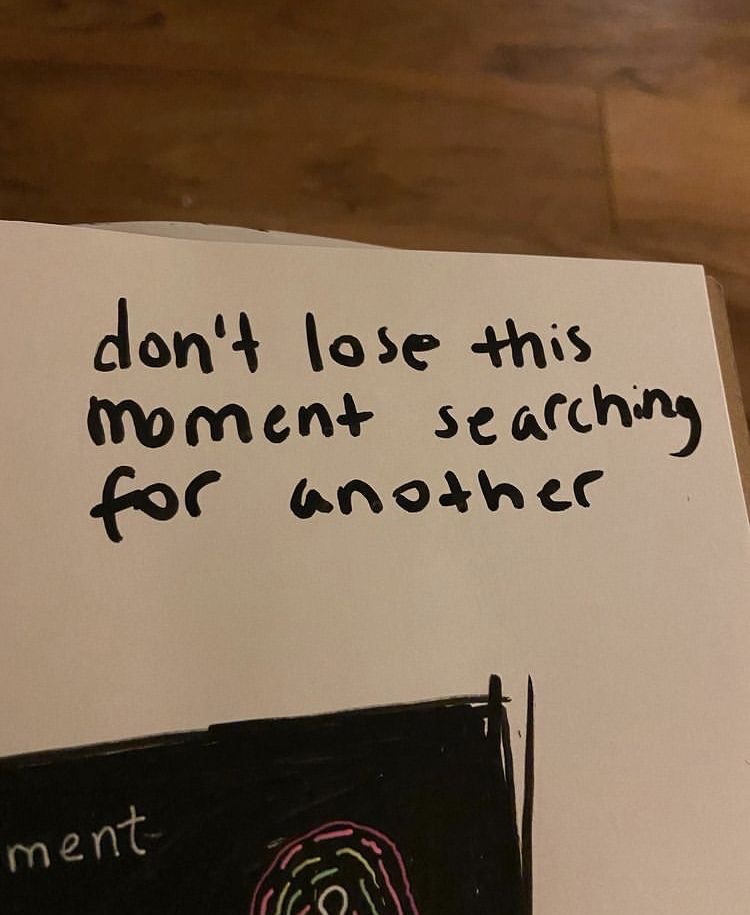 don't lose this
moment searching
for another
ment